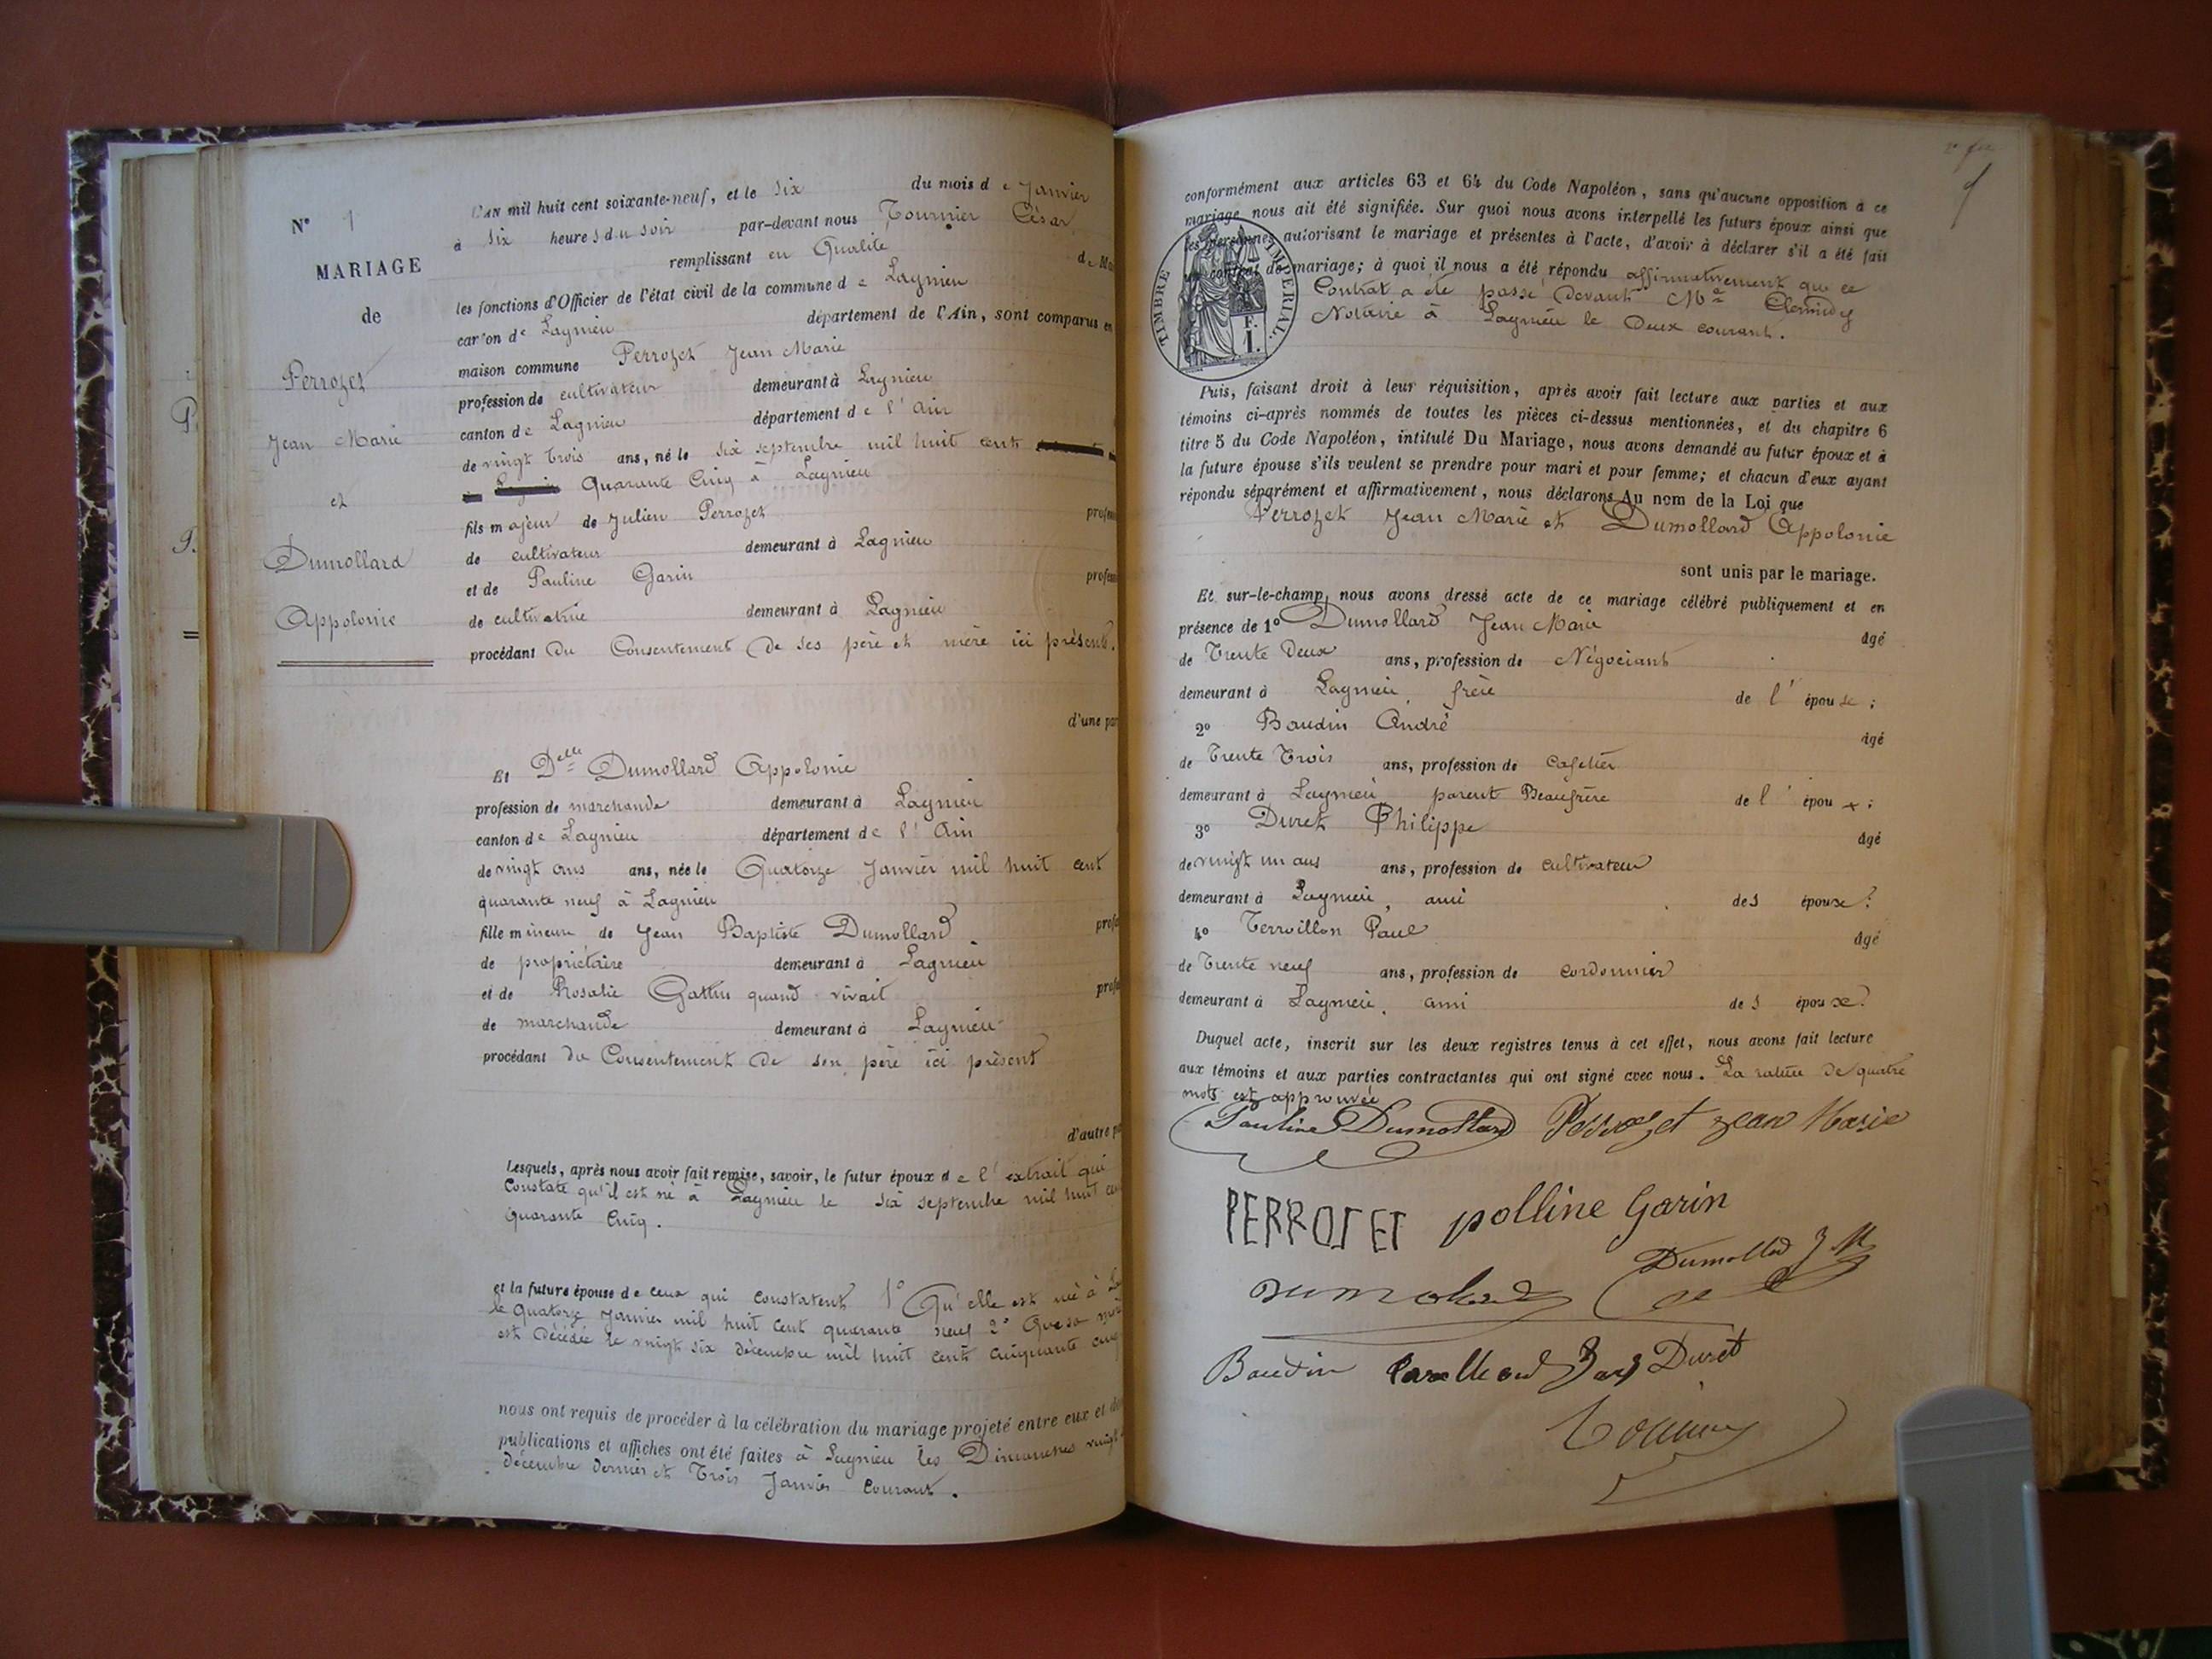 N° 1
MARIAGE
de
Perrozet
Jean Marie
et
Dumollard
Appolonie
L'AN mil huit cent soixante-neuf, et le six du mois de Janvier
à six heures du soir par-devant nous Tournier César
remplissant en Qualité de
les fonctions d'Officier de l'état civil de la commune de Lagnieu
canton de Lagnieu département de l'Ain, sont comparus en
maison commune Perrozet Jean Marie
profession de cultivateur demeurant à Lagnieu
canton de Lagnieu département de l'Ain
de vingt trois ans, né le six septembre mil huit cent
Quarante Cinq à Lagnieu
fils majeur de Julien Perrozet
de cultivateur demeurant à Lagnieu
et de Pauline Garin
de cultivatrice demeurant à Lagnieu
procédant du Consentement de ses père et mère ici présents.
d'une par
Et Delle Dumollard Appolonie
profession de marchande demeurant à Lagnieu
canton de Lagnieu département de l'Ain
de vingt ans ans, née le Quatorze Janvier mil huit cent
quarante neuf à Lagnieu
fille mineure de Jean Baptiste Dumollard
de propriétaire demeurant à Lagnieu
et de Rosalie quand vivait
de marchande demeurant à Lagnieu
procédant du Consentement de son père ici présent
d'autre
Lesquels, après nous avoir fait remise, savoir, le futur époux de l'extrait qui
Constate qu'il est né à Lagnieu le six septembre mil huit
Quarante Cinq.
et la future épouse de ceux qui constatent 1° Qu'elle est née à
le Quatorze Janvier mil huit cent quarante neuf 2° Que sa
est décédée le vingt six décembre mil huit cent cinquante
nous ont requis de procéder à la célébration du mariage projeté entre eux et
publications et affiches ont été faites à Lagnieu les Dimanches vingt
décembre dernier et Trois Janvier Courant.
conformément aux articles 63 et 64 du Code Napoléon, sans qu'aucune opposition à ce
mariage nous ait été signifiée. Sur quoi nous avons interpellé les futurs époux ainsi que
les personnes autorisant le mariage et présentes à l'acte, d'avoir à déclarer s'il a été fait
un contrat de mariage; à quoi il nous a été répondu affirmativement que ce
Contrat a été passé devant Me
Notaire à Lagnieu le Deux courant.
TIMBRE IMPERIAL.
F.
1.
Puis, faisant droit à leur réquisition, après avoir fait lecture aux parties et aux
témoins ci-après nommés de toutes les pièces ci-dessus mentionnées, et du chapitre 6
titre 5 du Code Napoléon, intitulé Du Mariage, nous avons demandé au futur époux et à
la future épouse s'ils veulent se prendre pour mari et pour femme; et chacun d'eux ayant
répondu séparément et affirmativement, nous déclarons Au nom de la Loi que
Perrozet Jean Marie et Dumollard Appolonie
sont unis par le mariage.
Et sur-le-champ, nous avons dressé acte de ce mariage célébré publiquement et en
présence de 1° Dumollard Jean Marie âgé
de Trente Deux ans, profession de Négociant
demeurant à Lagnieu frère de l'épouse;
2° Baudin André âgé
de Trente Trois ans, profession de Cafetier
demeurant à Lagnieu parent Beaufrère de l'époux;
3° Duret Philippe âgé
de vingt un ans ans, profession de cultivateur
demeurant à Lagnieu, ami des époux?
4° Terroillon Paul âgé
de Trente neuf ans, profession de cordonnier
demeurant à Lagnieu, ami des époux?
Duquel acte, inscrit sur les deux registres tenus à cet effet, nous avons fait lecture
aux témoins et aux parties contractantes qui ont signé avec nous. La rature de quatre
mots est approuvée
Pauline Dumollard Perrozet Jean Marie
PERROSET polline Garin
Dumollard J M
Baudin Duret